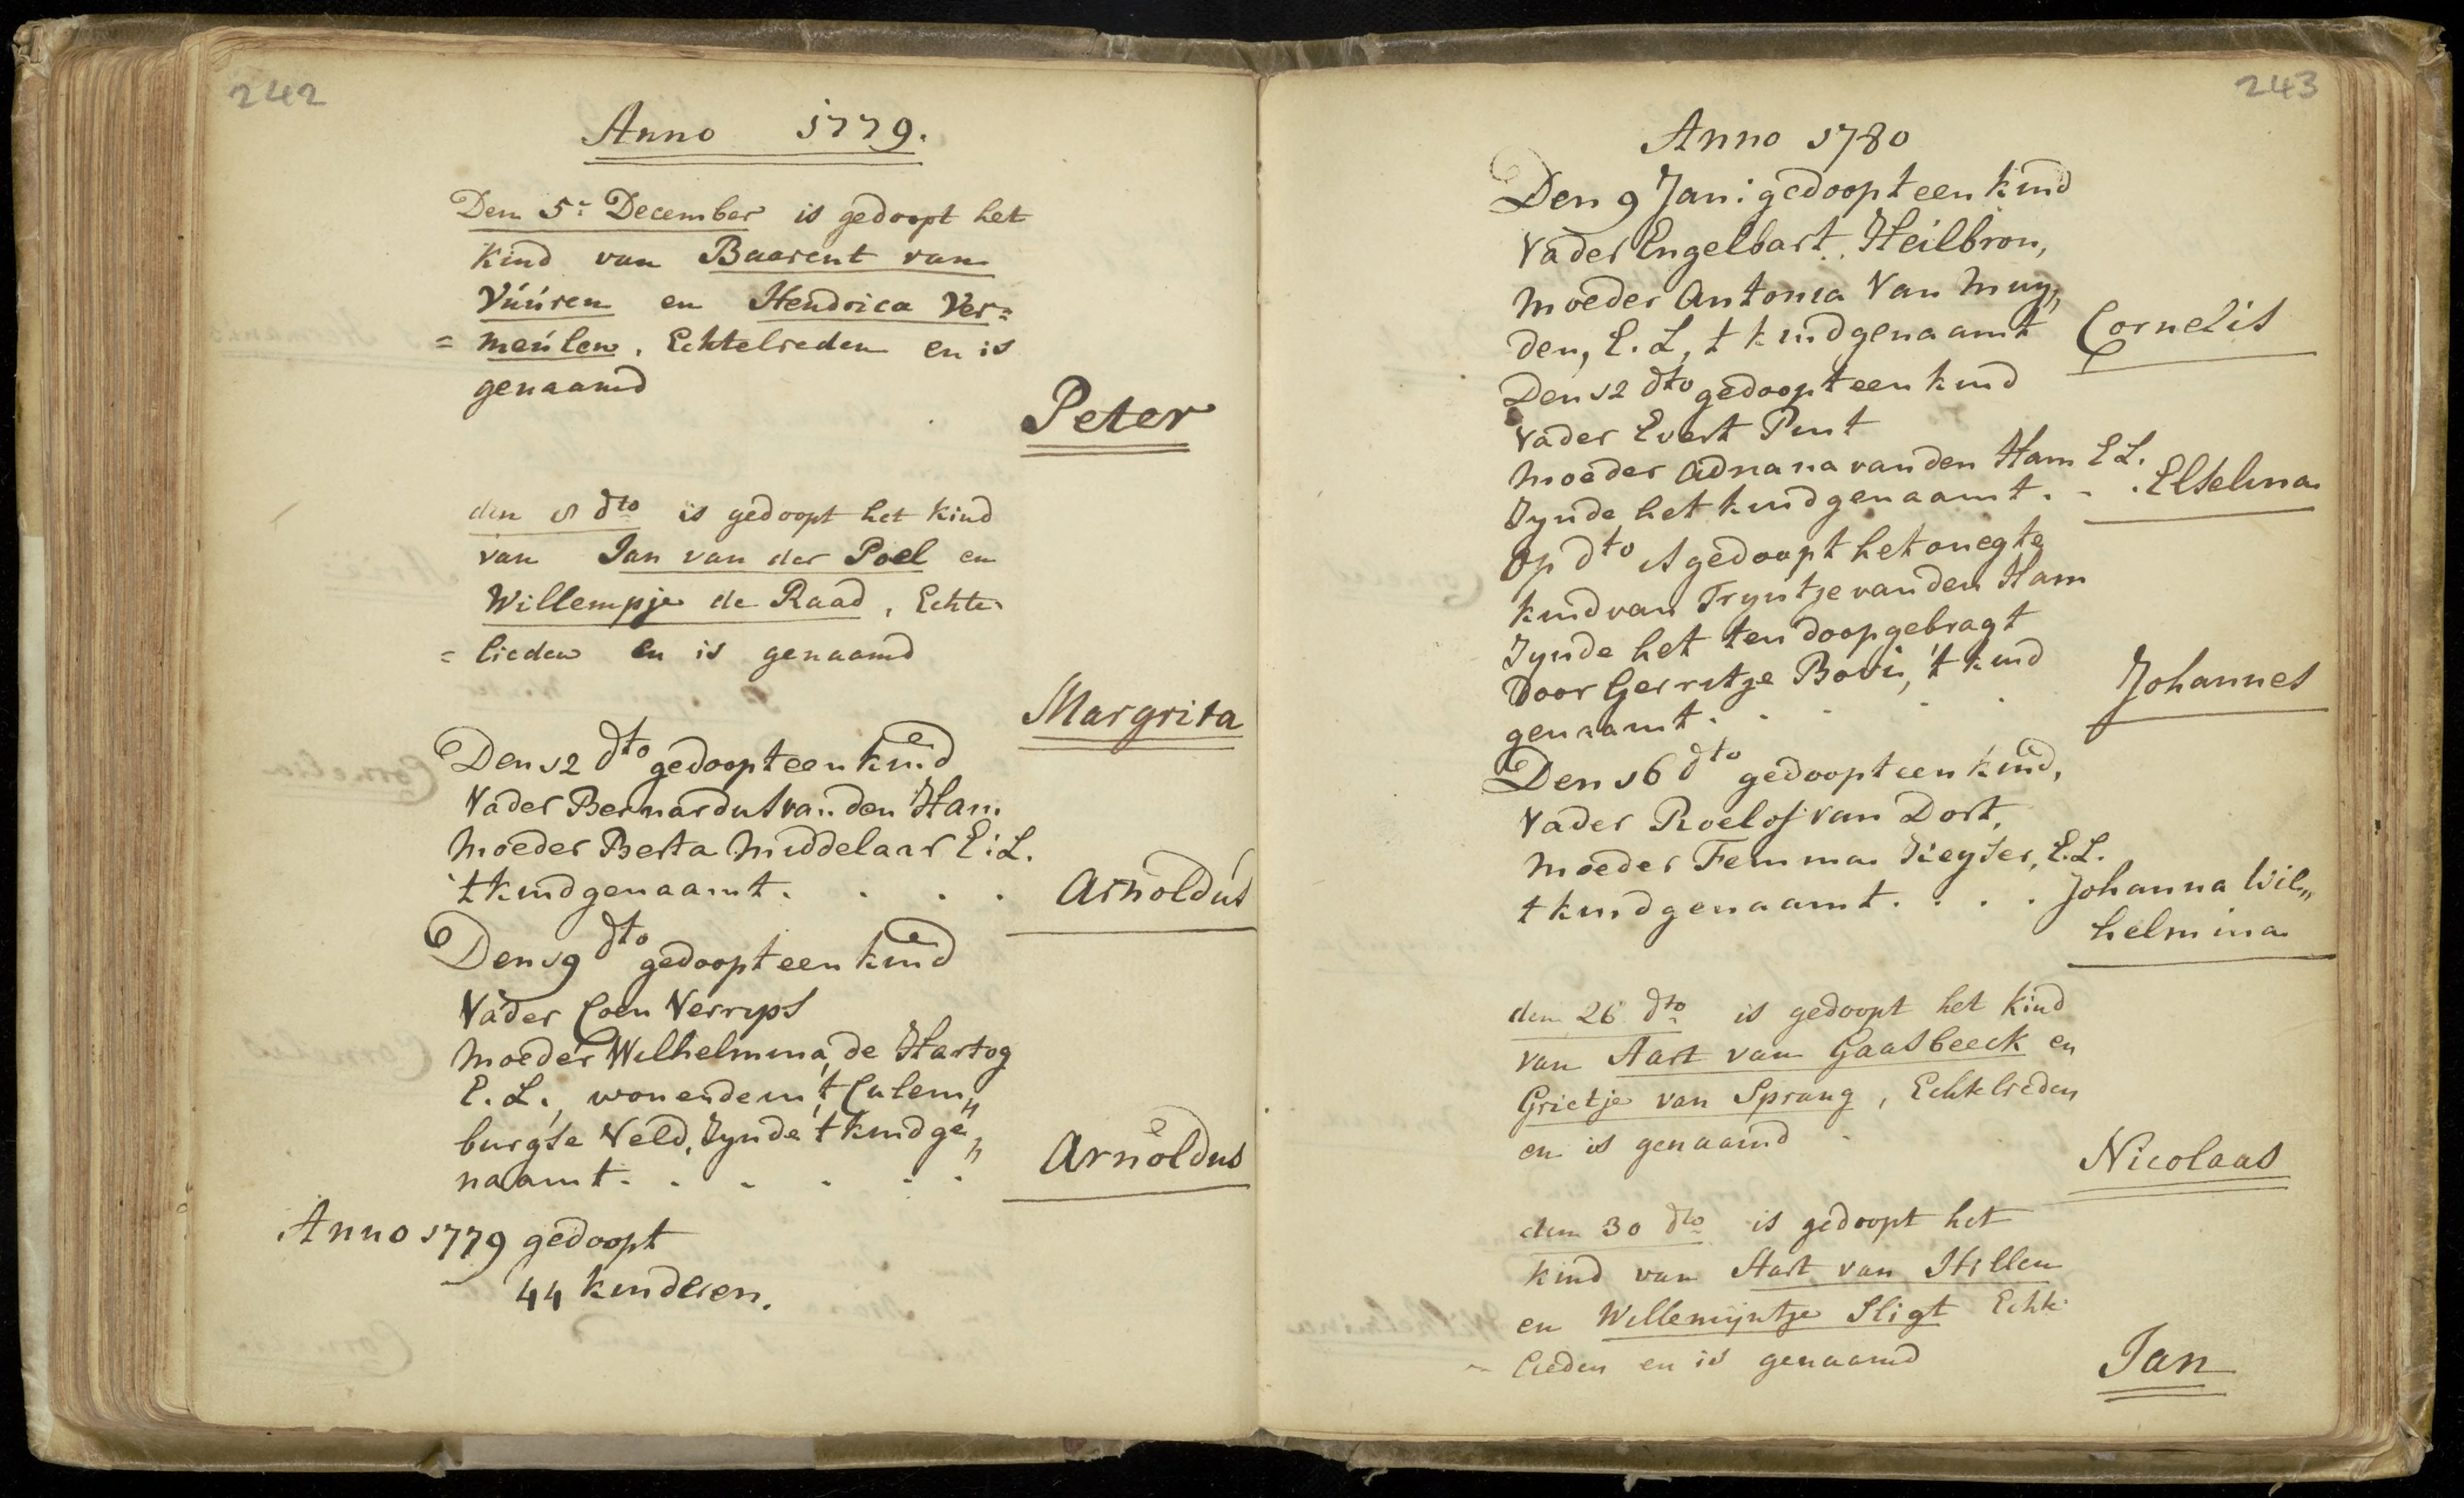 242
Anno 1779.
Den 5: December is gedoopt het
Kind van Baarent van
Vúúren en Hendrica Ver=
= meúlen, Echtelieden en is
genaamd
Peter
den 8 dto is gedoopt het Kind
van Jan van der Poel en
Willempje de Raad, Echte
= lieden en is genaamd
Margrita
Den 12 dto gedoopt een kind
Vader Bernardus van den Ham
Moeder Berta Middelaar E:L.
't kind genaamt. . . . Arnoldús
Den 19 dto gedoopt een kind
Vader Coen Verryps
Moeder Wilhelmina de Hartog
E. L., wonende in 't Culem„
burgse Veld, Zynde 't kind ge„
naamt. . . . . . Arnoldus
Anno 1779 gedoopt
44 kinderen.
243
Anno 1780
Den 9 Jan: gedoopt een kind
Vader Engelbart Heilbron,
Moeder Antonia Van Muy„
den, E. L, t kind genaamt Cornelis
Den 12 dto gedoopt een kind
Vader Evert Pint
Moeder Adriana van den Ham E L.
Zynde het kind genaamt. . . Elselina
Op dto is gedoopt het onegte
kind van Tryntje van den Ham
Zynde het ten doop gebragt
Door Gerritje Bovi, 't kind
genaamt. . . . . Johannes
Den 16 dto gedoopt een kind,
Vader Roelof van Dort,
Moeder Femma Keyser, E.L.
t kind genaamt. . . . Johanna Wil„
helmina
den 26 dto is gedoopt het Kind
van Aart van Gaasbeeck en
Grietje van Sprang, Echtelieden
en is genaamd
Nicolaas
den 30 dto is gedoopt het
Kind van Aart van Hillen
en Willemijntje Sligt Echte
= lieden en is genaamd
Jan